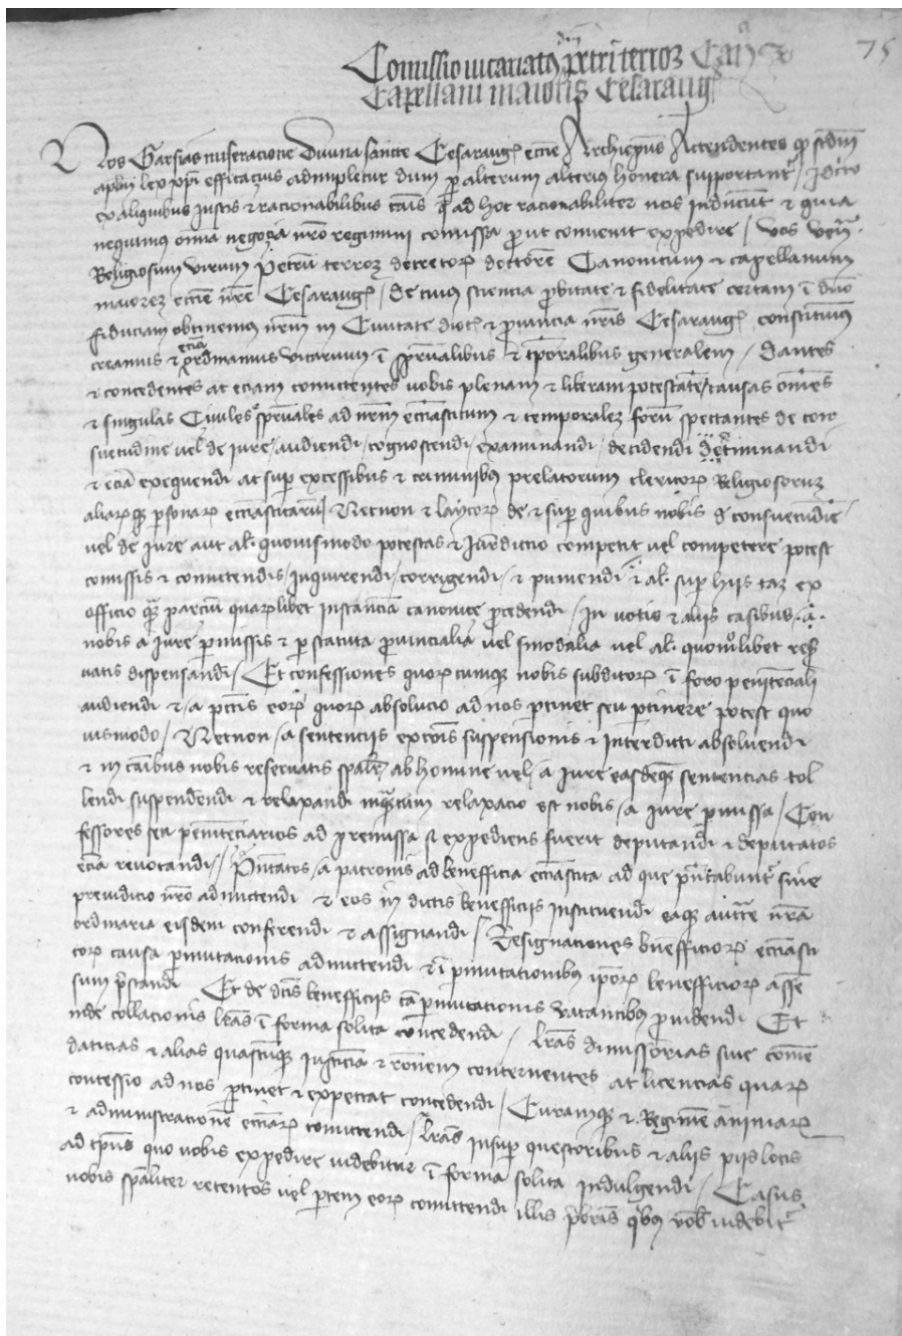 75
Comissio vicariatus dni petri terroz Can
Capellani maioris Cesaraug
Nos Garsias miseracione Divina sancte Cesaraug eccie Archiepus Attendentes q scdm
aplm lex xpi efficacius adimpletur dum p alterum alterius honera supportant / Idcirco
ex aliquibus iustis & racionabilibus cais q ad hoc racionabiliter nos inducunt & quia
nequimus omia negocia nro regimini comissa put convenit expedire / vos ven
Religiosum virum Petru terroz decretor doctore Canonicum & capellanum
maiorez eccie nre Cesaraug / De cuius sciencia pbitate & fidelitate certam i dno
fiduciam obtinemus nrm in Civitate dioc & pvincia nris Cesaraug constituimus
creamus & ecia ordinamus vicarium i spualibus & tporalibus generalem / Dantes
& concedentes ac eciam comictentes vobis plenam & liberam potestate / causas omes
& singulas Civiles spuales ad nrm ecciasticum & temporalez foru spectantes de con
suetudine vel de iure / audiendi / cognoscendi / examinandi / decidendi determinandi
& ecia exequendi at sup excessibus & criminibus prelatorum clericor Religiosoruz
aliarq psonar ecciasticaru / Necnon & laycor de & sup quibus nobis d consuetudie
vel de iure aut al quovismodo potestas & iurdictio competit vel competere potest
comissis & comictendis / inquirendi / corrigendi / & puniendi & al sup hiis taz ex
officio qz parciu quarlibet instancia canonice pcedendi / in votis & aliis casibus a
nobis a iure pmissis & p statuta pvincialia vel sinodalia vel al quomolibet reser
vatis dispensandi / Et confessiones quorcumq nobis subditor i foro penitenciali
audiendi & a pctis eor quor absolucio ad nos ptinet seu ptinere potest quo
vismodo / Necnon / a sentenciis excois suspensionis & interdicti absolvendi
& in caibus nobis reservatis spalr ab homine vel / a iure easdeq sentencias tol
lendi suspendendi & relaxandi inqtum relaxacio est nobis / a iure pmissa / Con
fessores seu penitenciarios ad premissa si expediens fuerit deputandi & deputatos
ecia revocandi / Pntatos / a patronis ad benefficia ecciastica ad que pntabunt sine
preiudicio nro admictendi & eos in dictis benefficiis instituendi eaq aucte nra
ordinaria eisdem conferendi & assignandi / Resignaciones benefficior ecciasti
cor causa pmutacionis admictendi & i pmutacionibus ipor benefficior assen
sum pstandi Et de dcis benefficiis ca pmutacionis vacantibus pvidendi Et
inde collacionis lras i forma solita concedendi / lras dimissorias sive comen
daticias & alias quascuq iusticia & ronem concernentes at licencias quar
concessio ad nos ptinet & expectat concedendi / Curamq & Regimie animar
& administracione ecciar comictendi / lras insup questoribus & aliis piis locis
ad tpus quo vobis expedire videbitur i forma solita indulgendi / Casus
nobis spaliter retentos vel ptem eor comictendi illis pbris qbus vob videbit